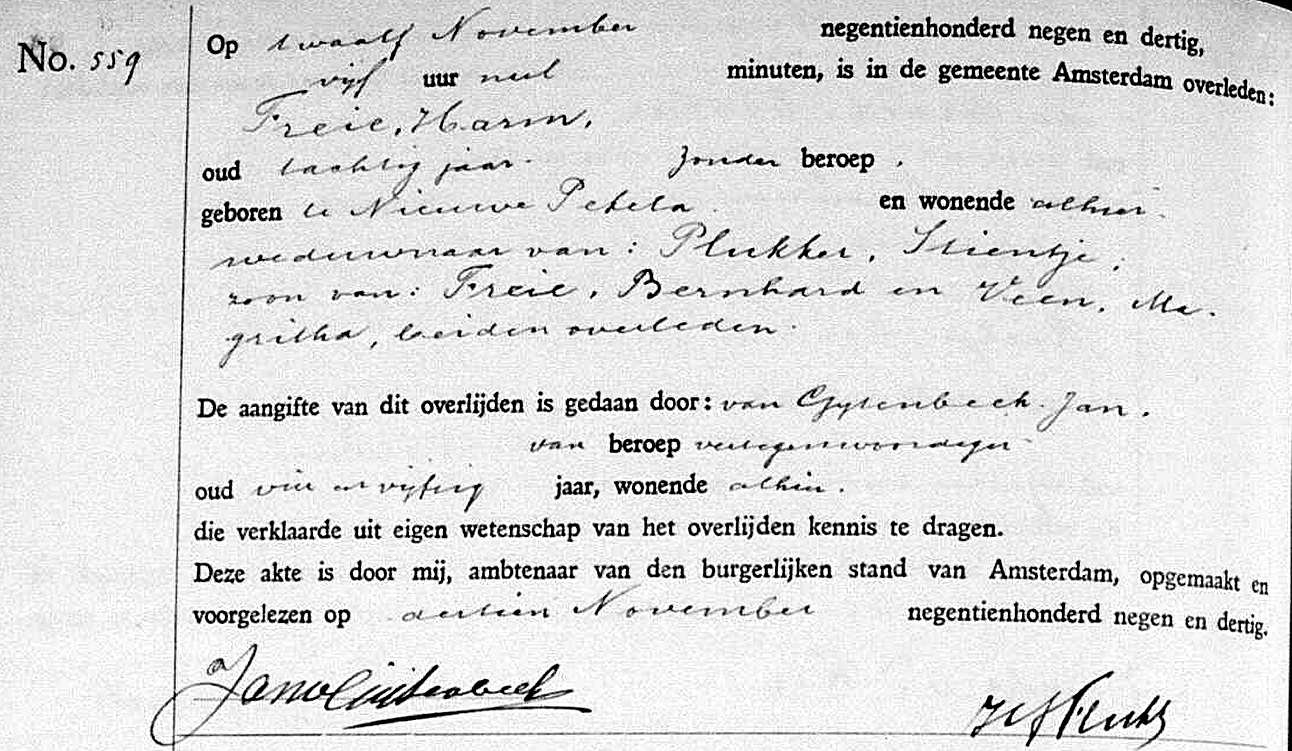 No. 559
Op twaalf November negentienhonderd negen en dertig,
vijf uur nul minuten, is in de gemeente Amsterdam overleden:
Freie, Harm,
oud tachtig jaar. zonder beroep.
geboren te Nieuwe Pekela. en wonende alhier.
weduwnaar van: Plukker, Stientje;
zoon van: Freie, Bernhard en Veen, Ma-
gritha, beiden overleden.
De aangifte van dit overlijden is gedaan door: van Gytenbeek Jan.
van beroep vertegenwoordiger
oud vier en vijftig jaar, wonende alhier.
die verklaarde uit eigen wetenschap van het overlijden kennis te dragen.
Deze akte is door mij, ambtenaar van den burgerlijken stand van Amsterdam, opgemaakt en
voorgelezen op dertien November negentienhonderd negen en dertig.